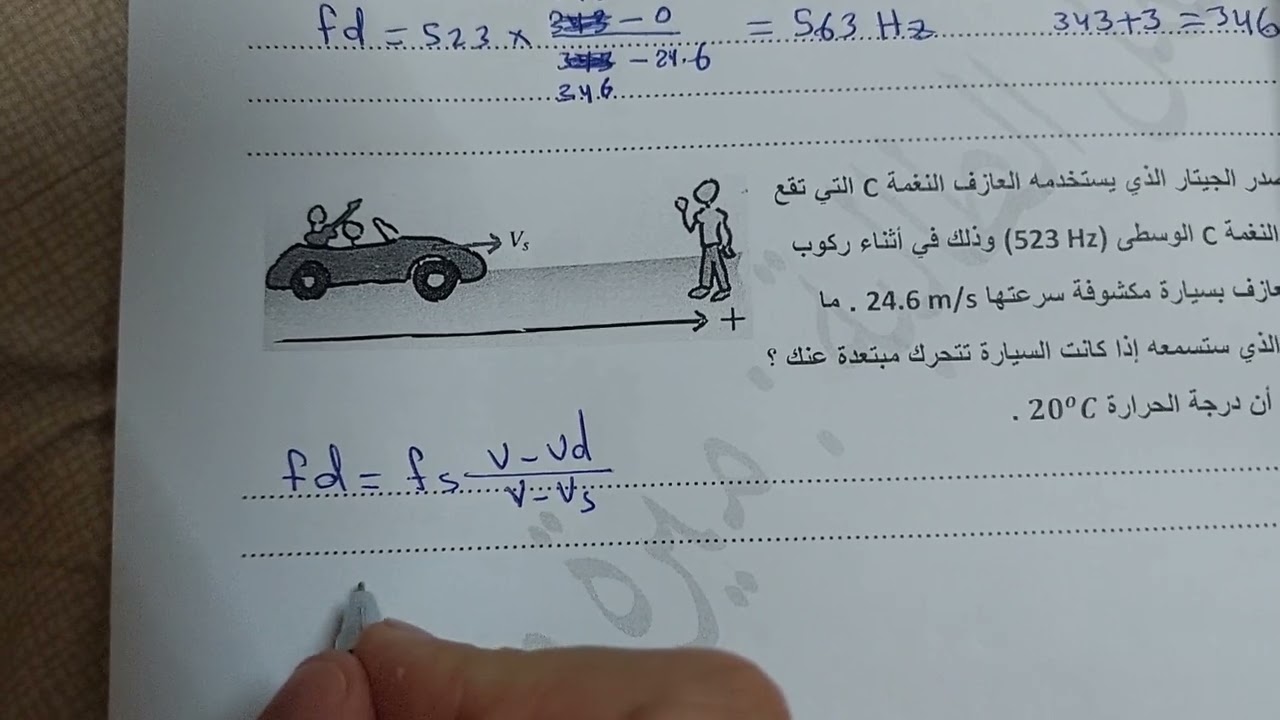 fd = 523 × 343 - 0 / 343 - 24.6 = 563 Hz 343+3 = 346
346
صدر الجيتار الذي يستخدمه العازف النغمة C التي تقع
النغمة C الوسطى (523 Hz) وذلك في أثناء ركوب
عازف بسيارة مكشوفة سرعتها 24.6 m/s . ما
الذي ستسمعه إذا كانت السيارة تتحرك مبتعدة عنك ؟
أن درجة الحرارة 20°C .
Vs
+
fd = fs V - Vd / V - Vs